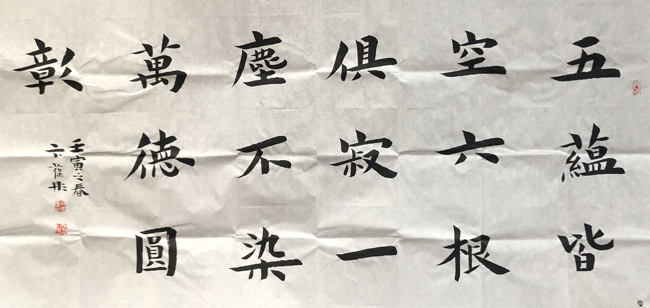 五蘊皆
空六根
俱寂一
塵不染
萬德圓
彰
壬寅之春